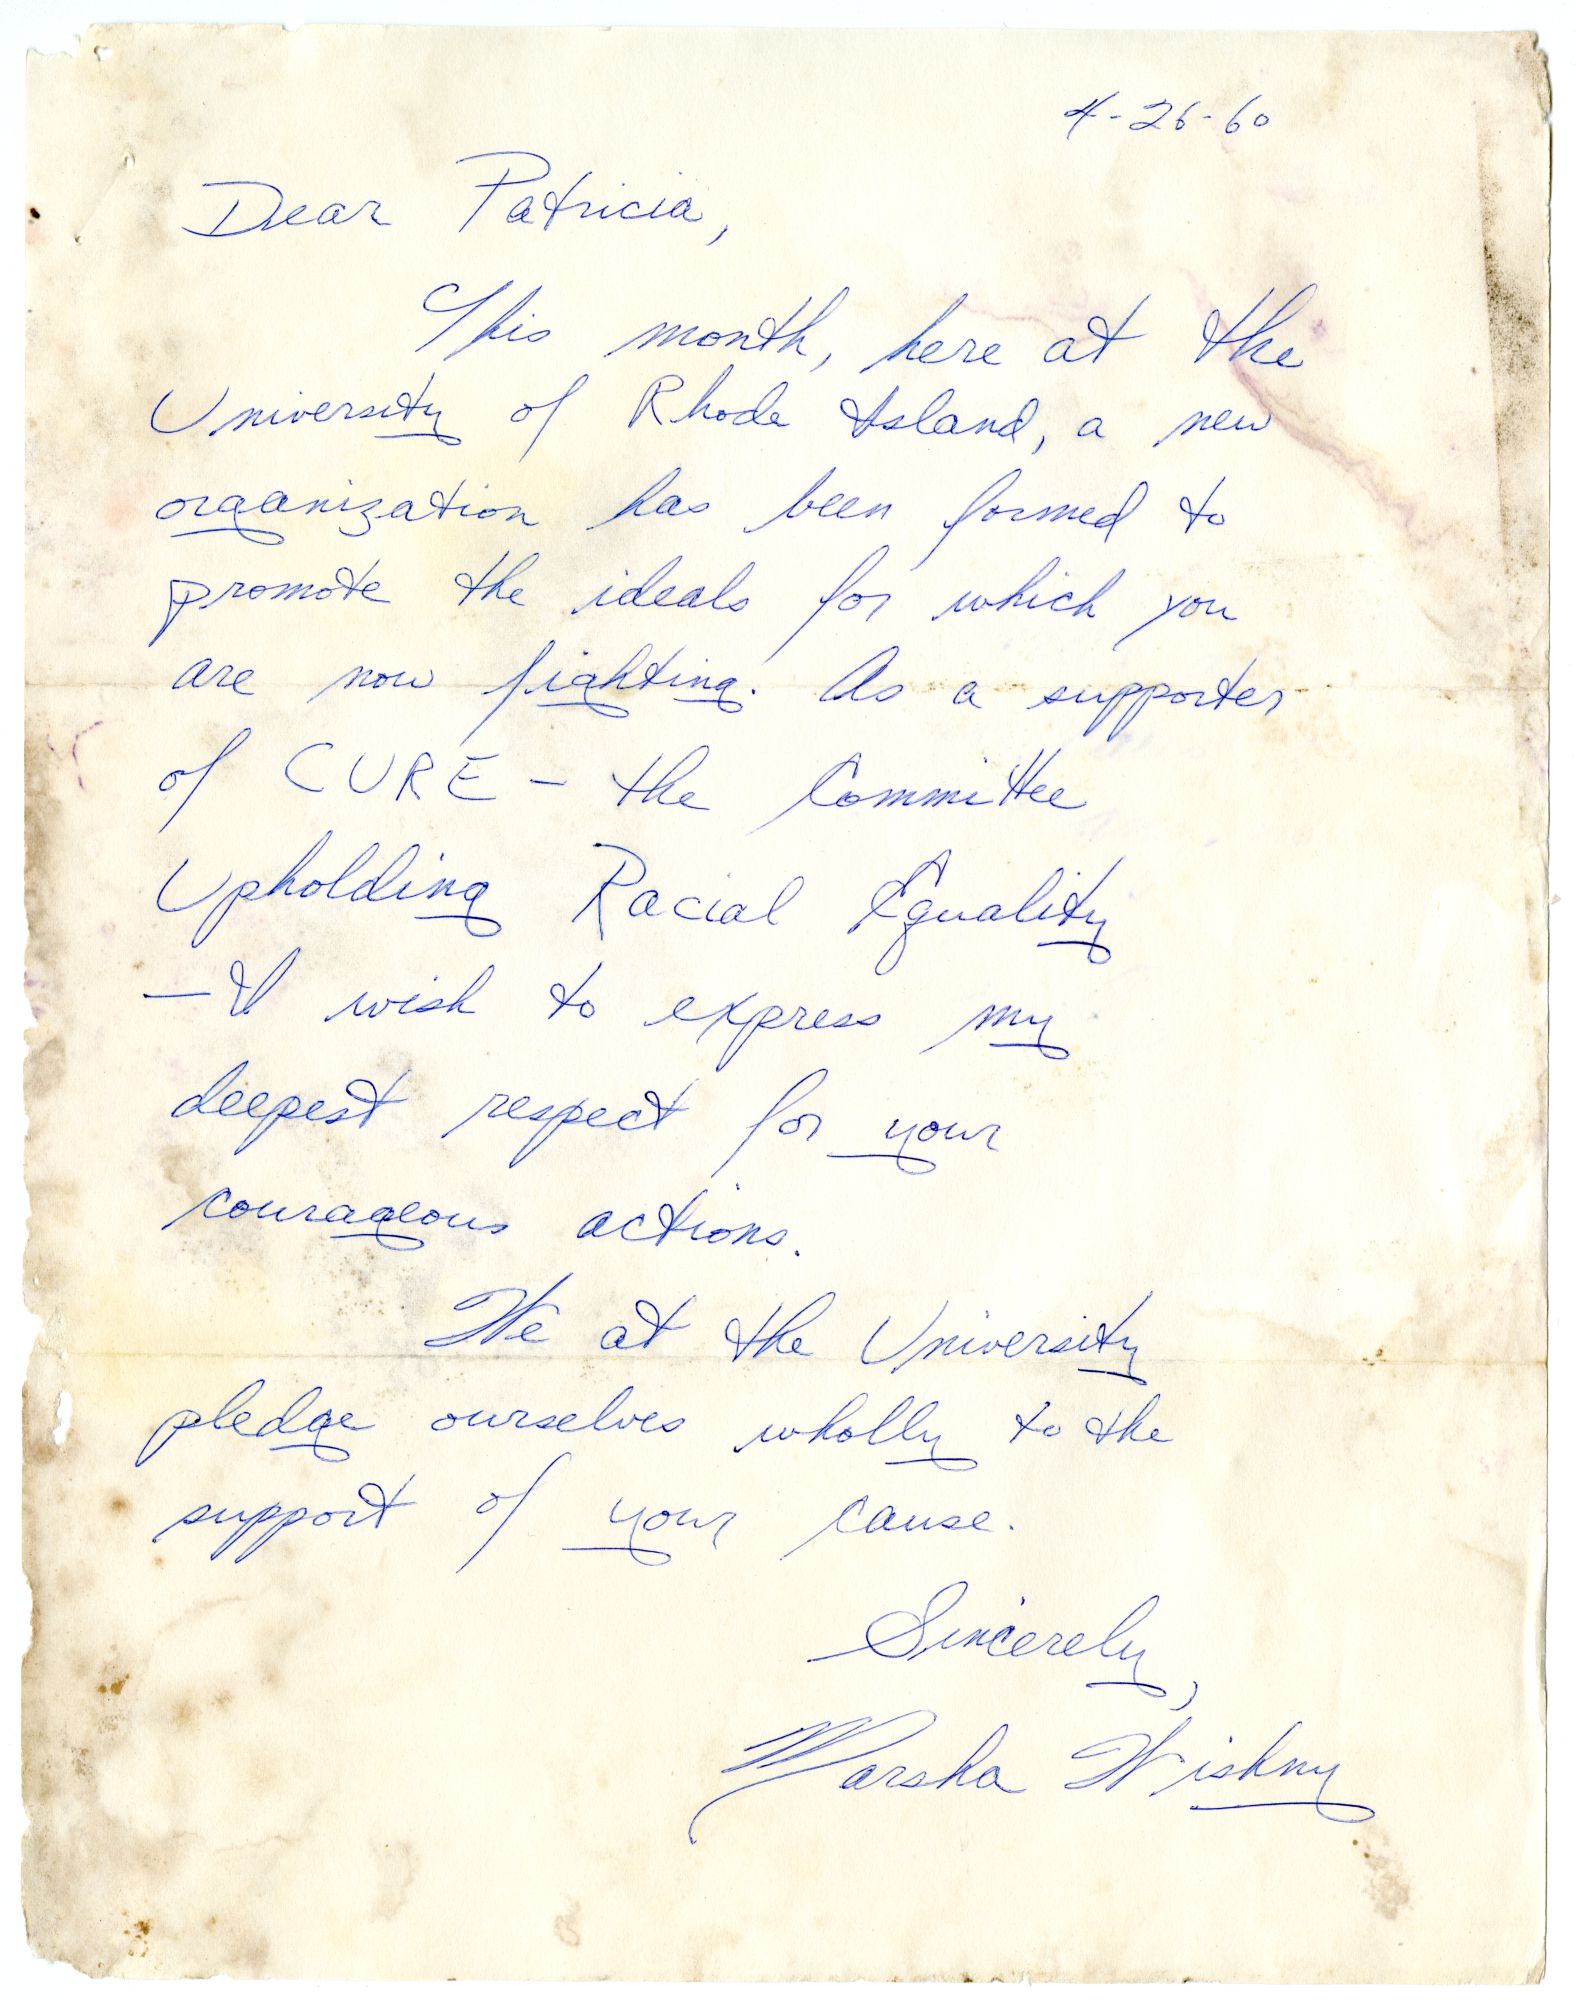 4-26-60
Dear Patricia,
This month, here at the
University of Rhode Island, a new
organization has been formed to
promote the ideals for which you
are now fighting. As a supporter
of CURE - the Committee
Upholding Racial Equality
- I wish to express my
deepest respect for your
courageous actions.
We at the University
pledge ourselves wholly to the
support of your cause.
Sincerely,
Marsha Wishny